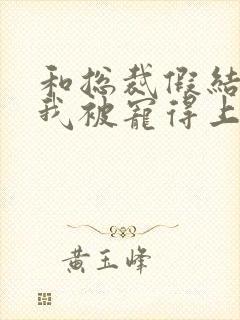 和总裁假结
我被宠得上
黄玉峰